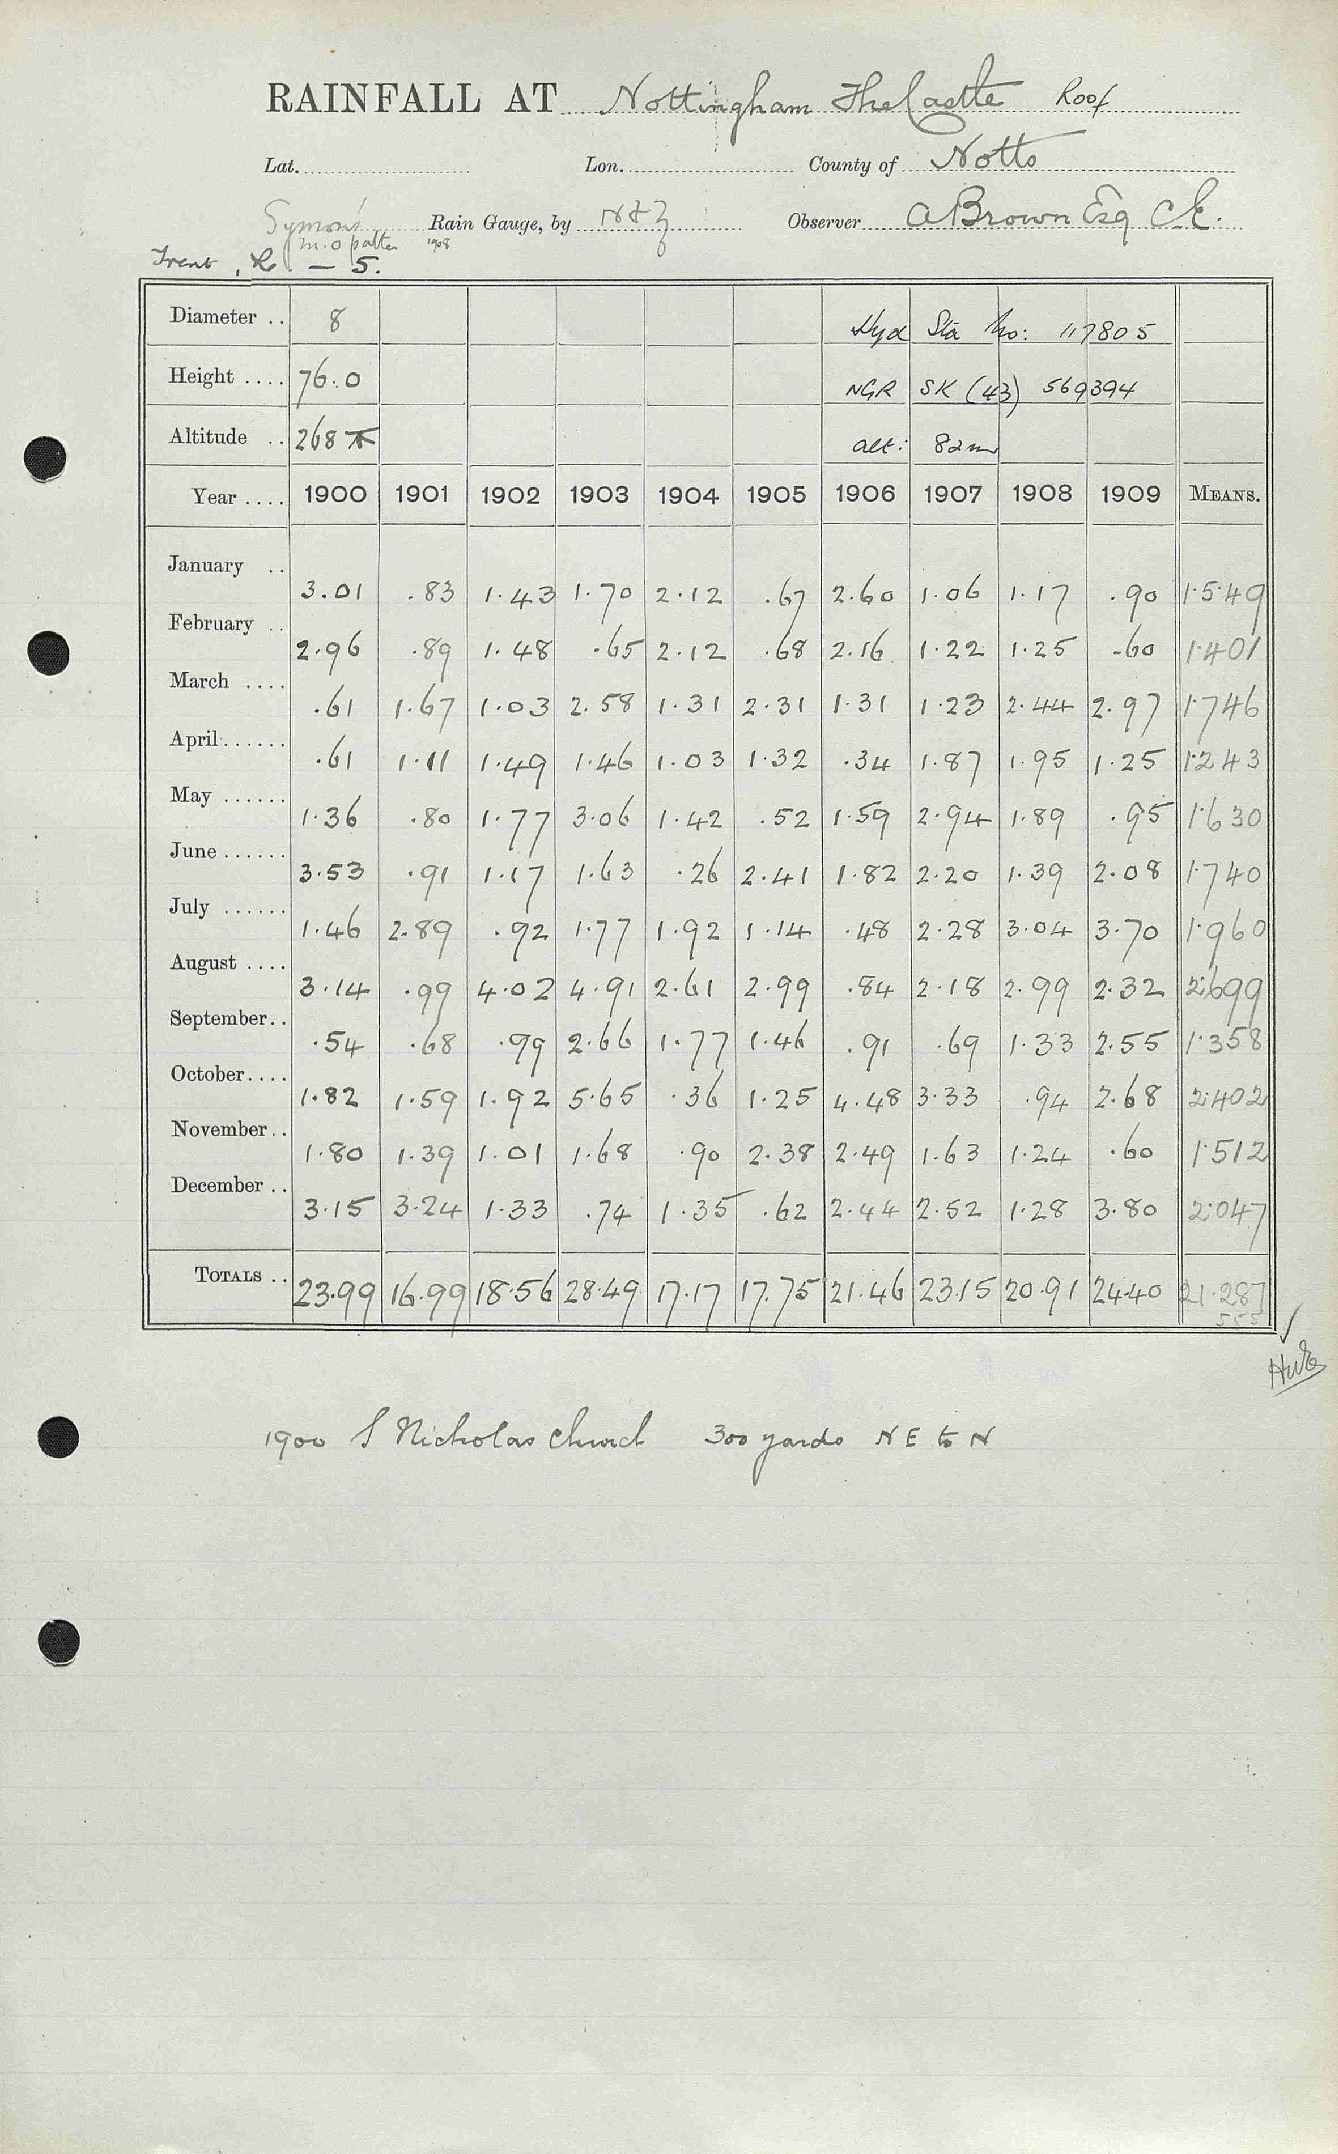 RAINFALL AT Nottingham The Castle Roof
Lat. Lon. County of Notts
Symon's Rain Gauge, by N & Z Observer A Brown Esq C.E.
M.O patter 1908
Trent, R. — 5.
Diameter .. 8 Hyd Sta No: 117805
Height .... 76.0 NGR SK (43) 569394
Altitude .. 268 alt: 82m
Year .... 1900 1901 1902 1903 1904 1905 1906 1907 1908 1909 MEANS.
January .. 3.01 .83 1.43 1.70 2.12 .67 2.60 1.06 1.17 .90 1.549
February .. 2.96 .89 1.48 .65 2.12 .68 2.16 1.22 1.25 .60 1.401
March .... .61 1.67 1.03 2.58 1.31 2.31 1.31 1.23 2.44 2.97 1.746
April ...... .61 1.11 1.49 1.46 1.03 1.32 .34 1.87 1.95 1.25 1.243
May ...... 1.36 .80 1.77 3.06 1.42 .52 1.59 2.94 1.89 .95 1.630
June ...... 3.53 .91 1.17 1.63 .26 2.41 1.82 2.20 1.39 2.08 1.740
July ...... 1.46 2.89 .92 1.77 1.92 1.14 .48 2.28 3.04 3.70 1.960
August .... 3.14 .99 4.02 4.91 2.61 2.99 .84 2.18 2.99 2.32 2.699
September.. .54 .68 .99 2.66 1.77 1.46 .91 .69 1.33 2.55 1.358
October.... 1.82 1.59 1.92 5.65 .36 1.25 4.48 3.33 .94 2.68 2.402
November.. 1.80 1.39 1.01 1.68 .90 2.38 2.49 1.63 1.24 .60 1.512
December .. 3.15 3.24 1.33 .74 1.35 .62 2.44 2.52 1.28 3.80 2.047
TOTALS .. 23.99 16.99 18.56 28.49 17.17 17.75 21.46 23.15 20.91 24.40 21.287
555
1900 S Nicholas Church 300 yards N E to N